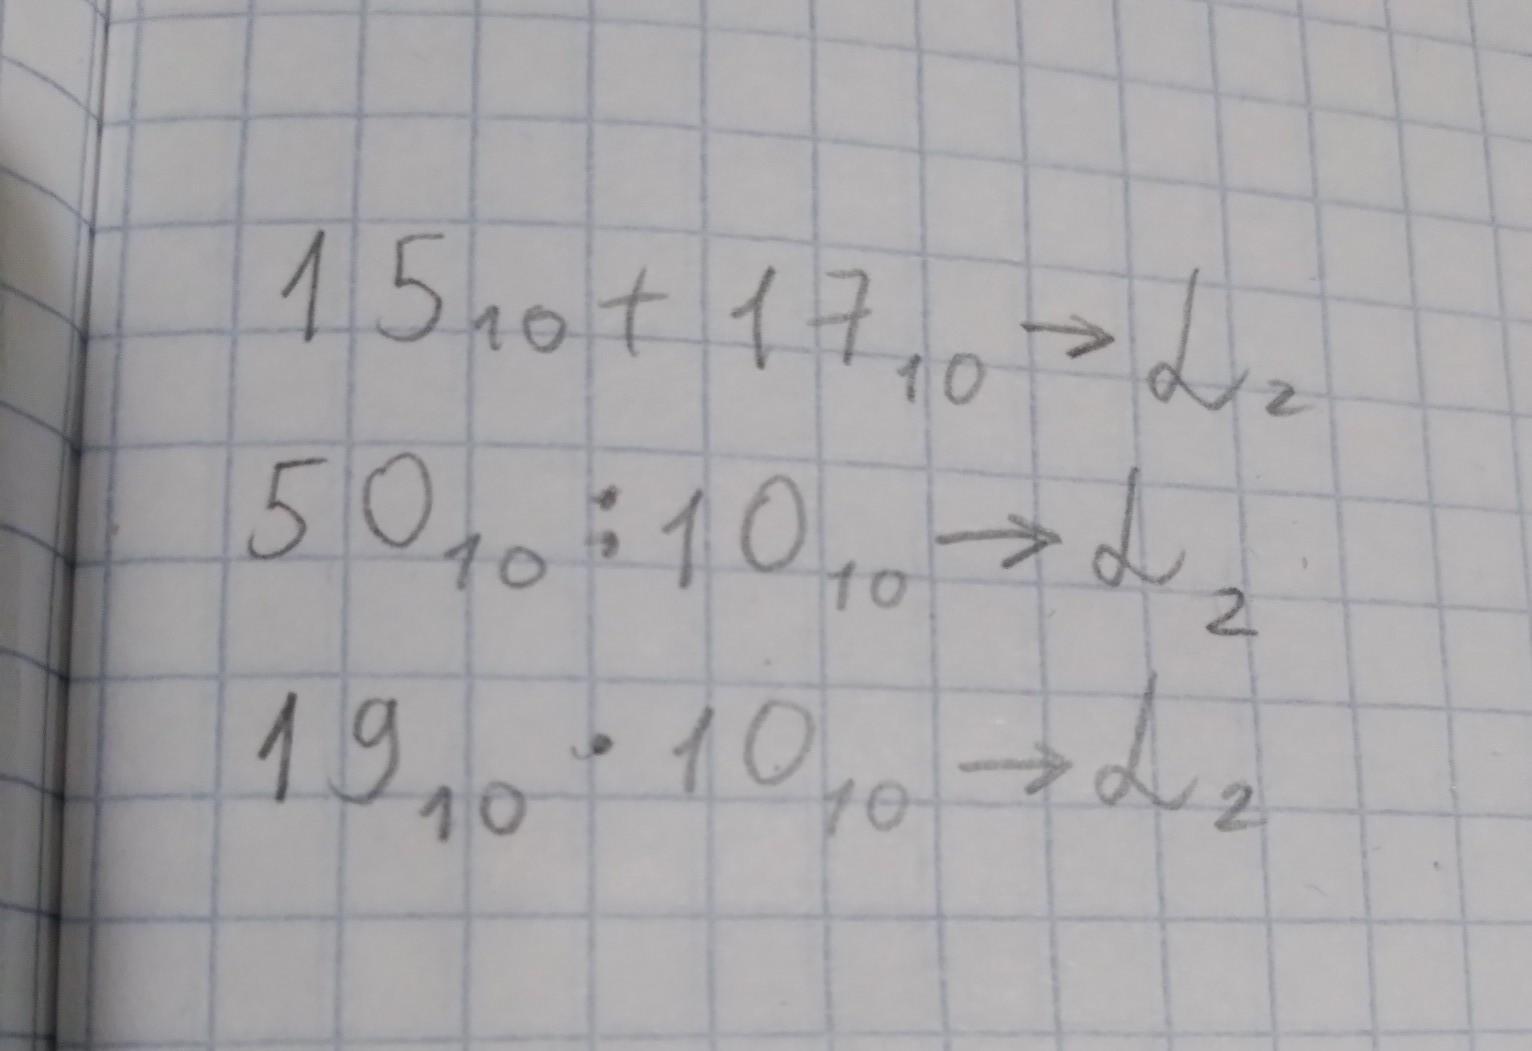 15₁₀ + 17₁₀ → L₂
50₁₀ : 10₁₀ → L₂
19₁₀ · 10₁₀ → L₂